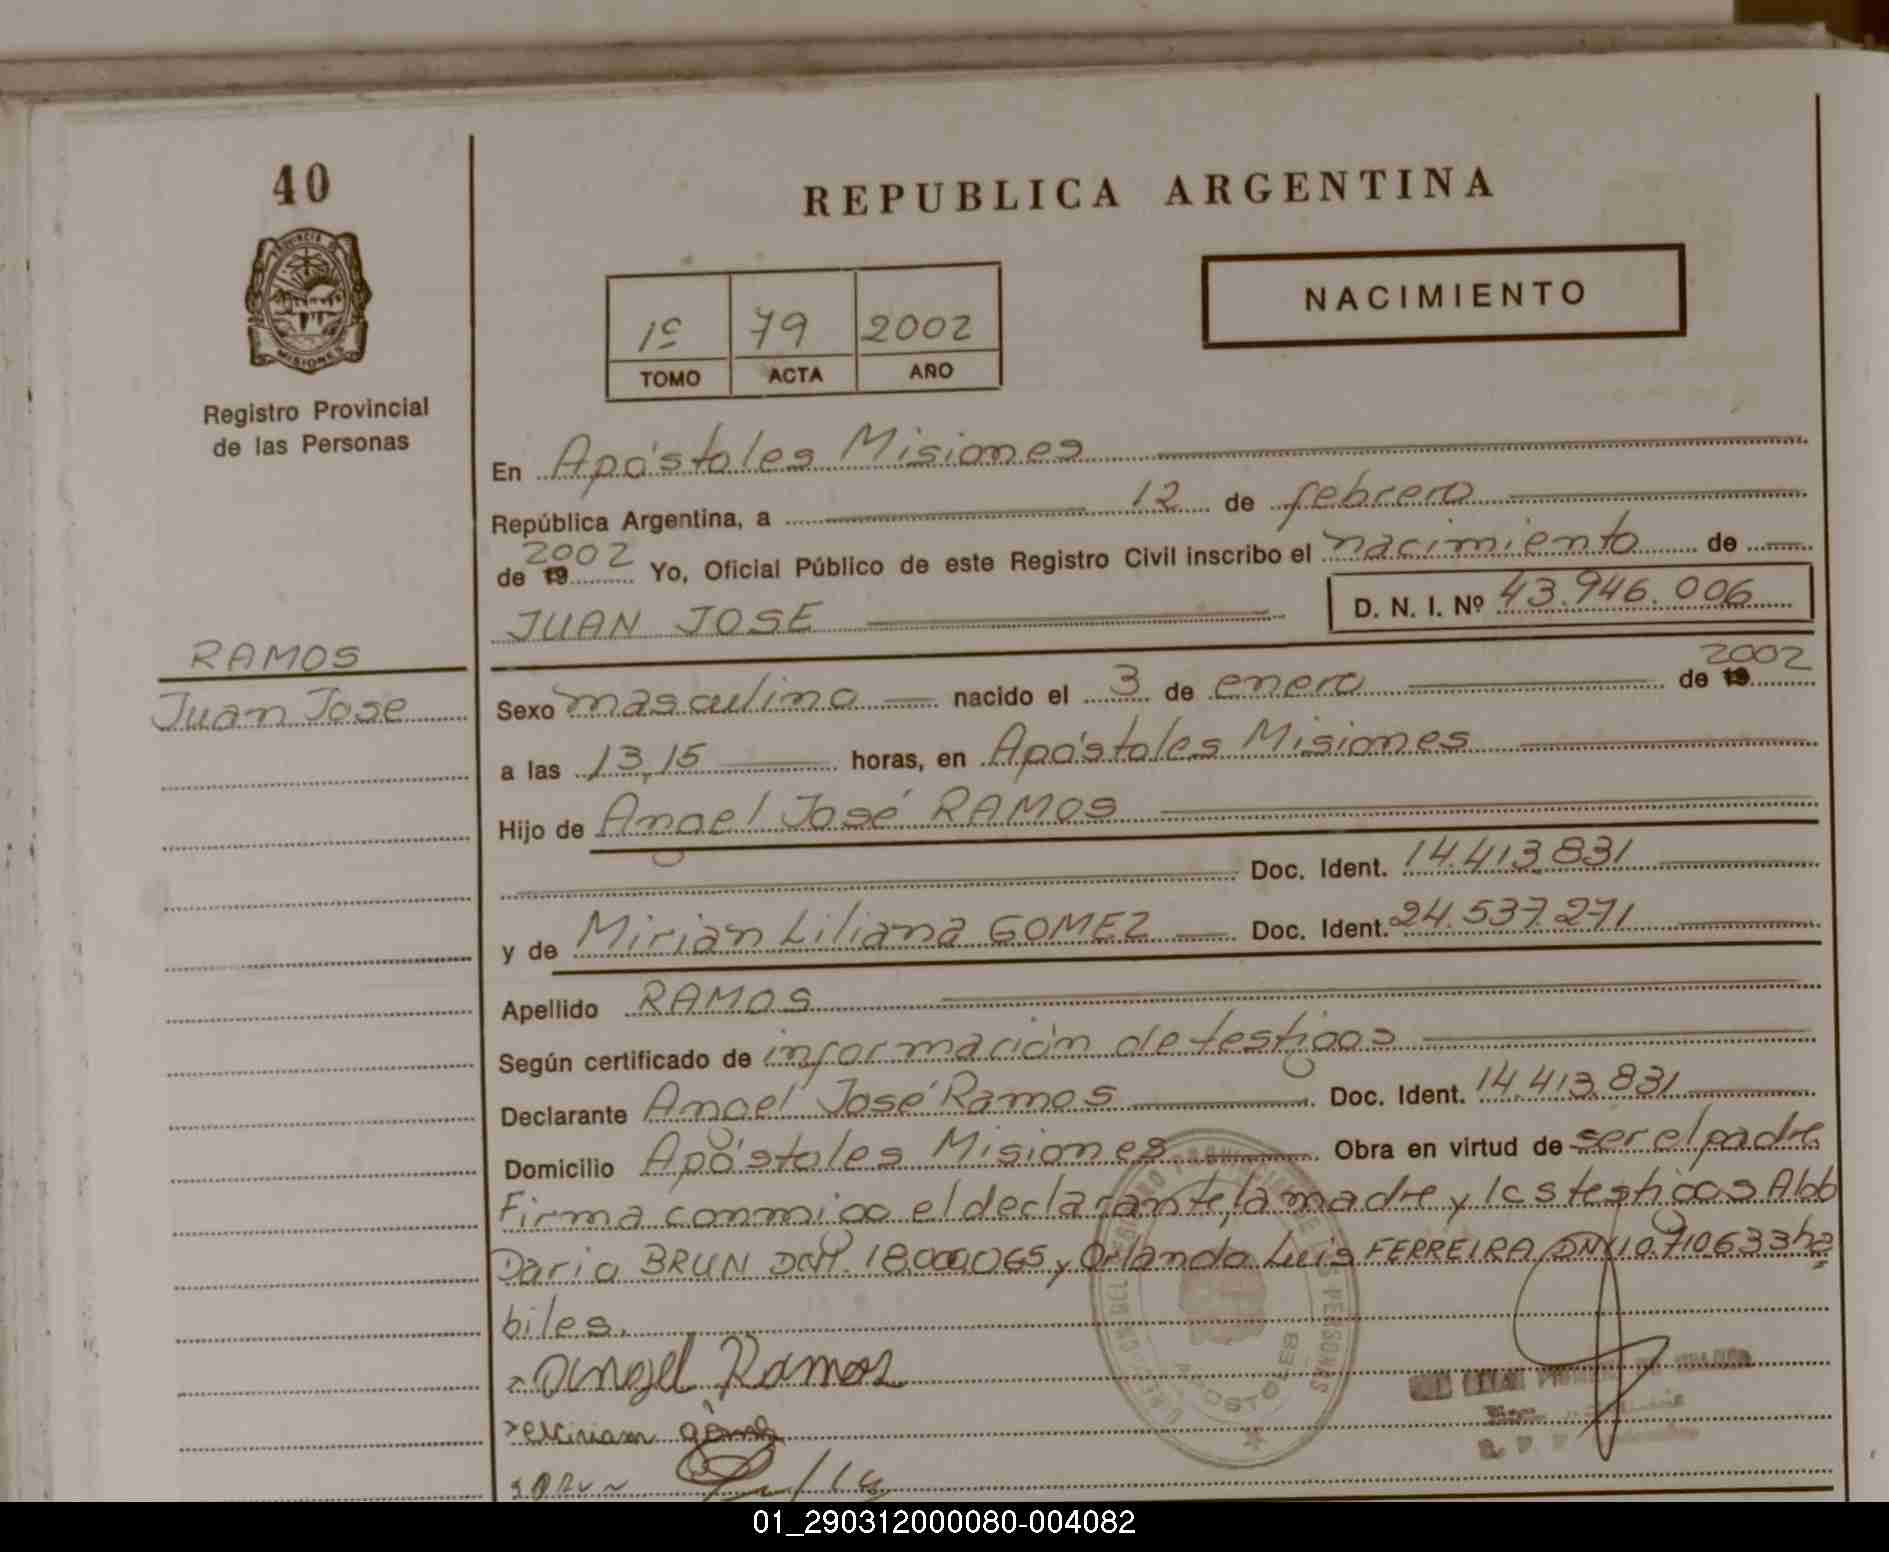 40
REPUBLICA ARGENTINA
PROVINCIA DE
MISIONES
Registro Provincial
de las Personas
1º 79 2002
TOMO ACTA AÑO
NACIMIENTO
En Apóstoles Misiones
República Argentina, a 12 de febrero
de 19 2002 Yo, Oficial Público de este Registro Civil inscribo el nacimiento de
JUAN JOSE D. N. I. Nº 43.946.006
RAMOS
Juan Jose
Sexo masculino nacido el 3 de enero de 19 2002
a las 13,15 horas, en Apóstoles Misiones
Hijo de Angel José RAMOS
Doc. Ident. 14.413.831
y de Mirian Liliana GOMEZ Doc. Ident. 24.537.271
Apellido RAMOS
Según certificado de información de testigos
Declarante Angel José Ramos Doc. Ident. 14.413.831
Domicilio Apóstoles Misiones Obra en virtud de ser el padre
Firma conmigo el declarante, la madre y los testigos Aldo
Dario BRUN DNI. 18.000.065 y Orlando Luis FERREIRA DNI 10.710.633 há
biles.
Angel Ramos
PERSONAS
APOSTOLES
01_290312000080-004082